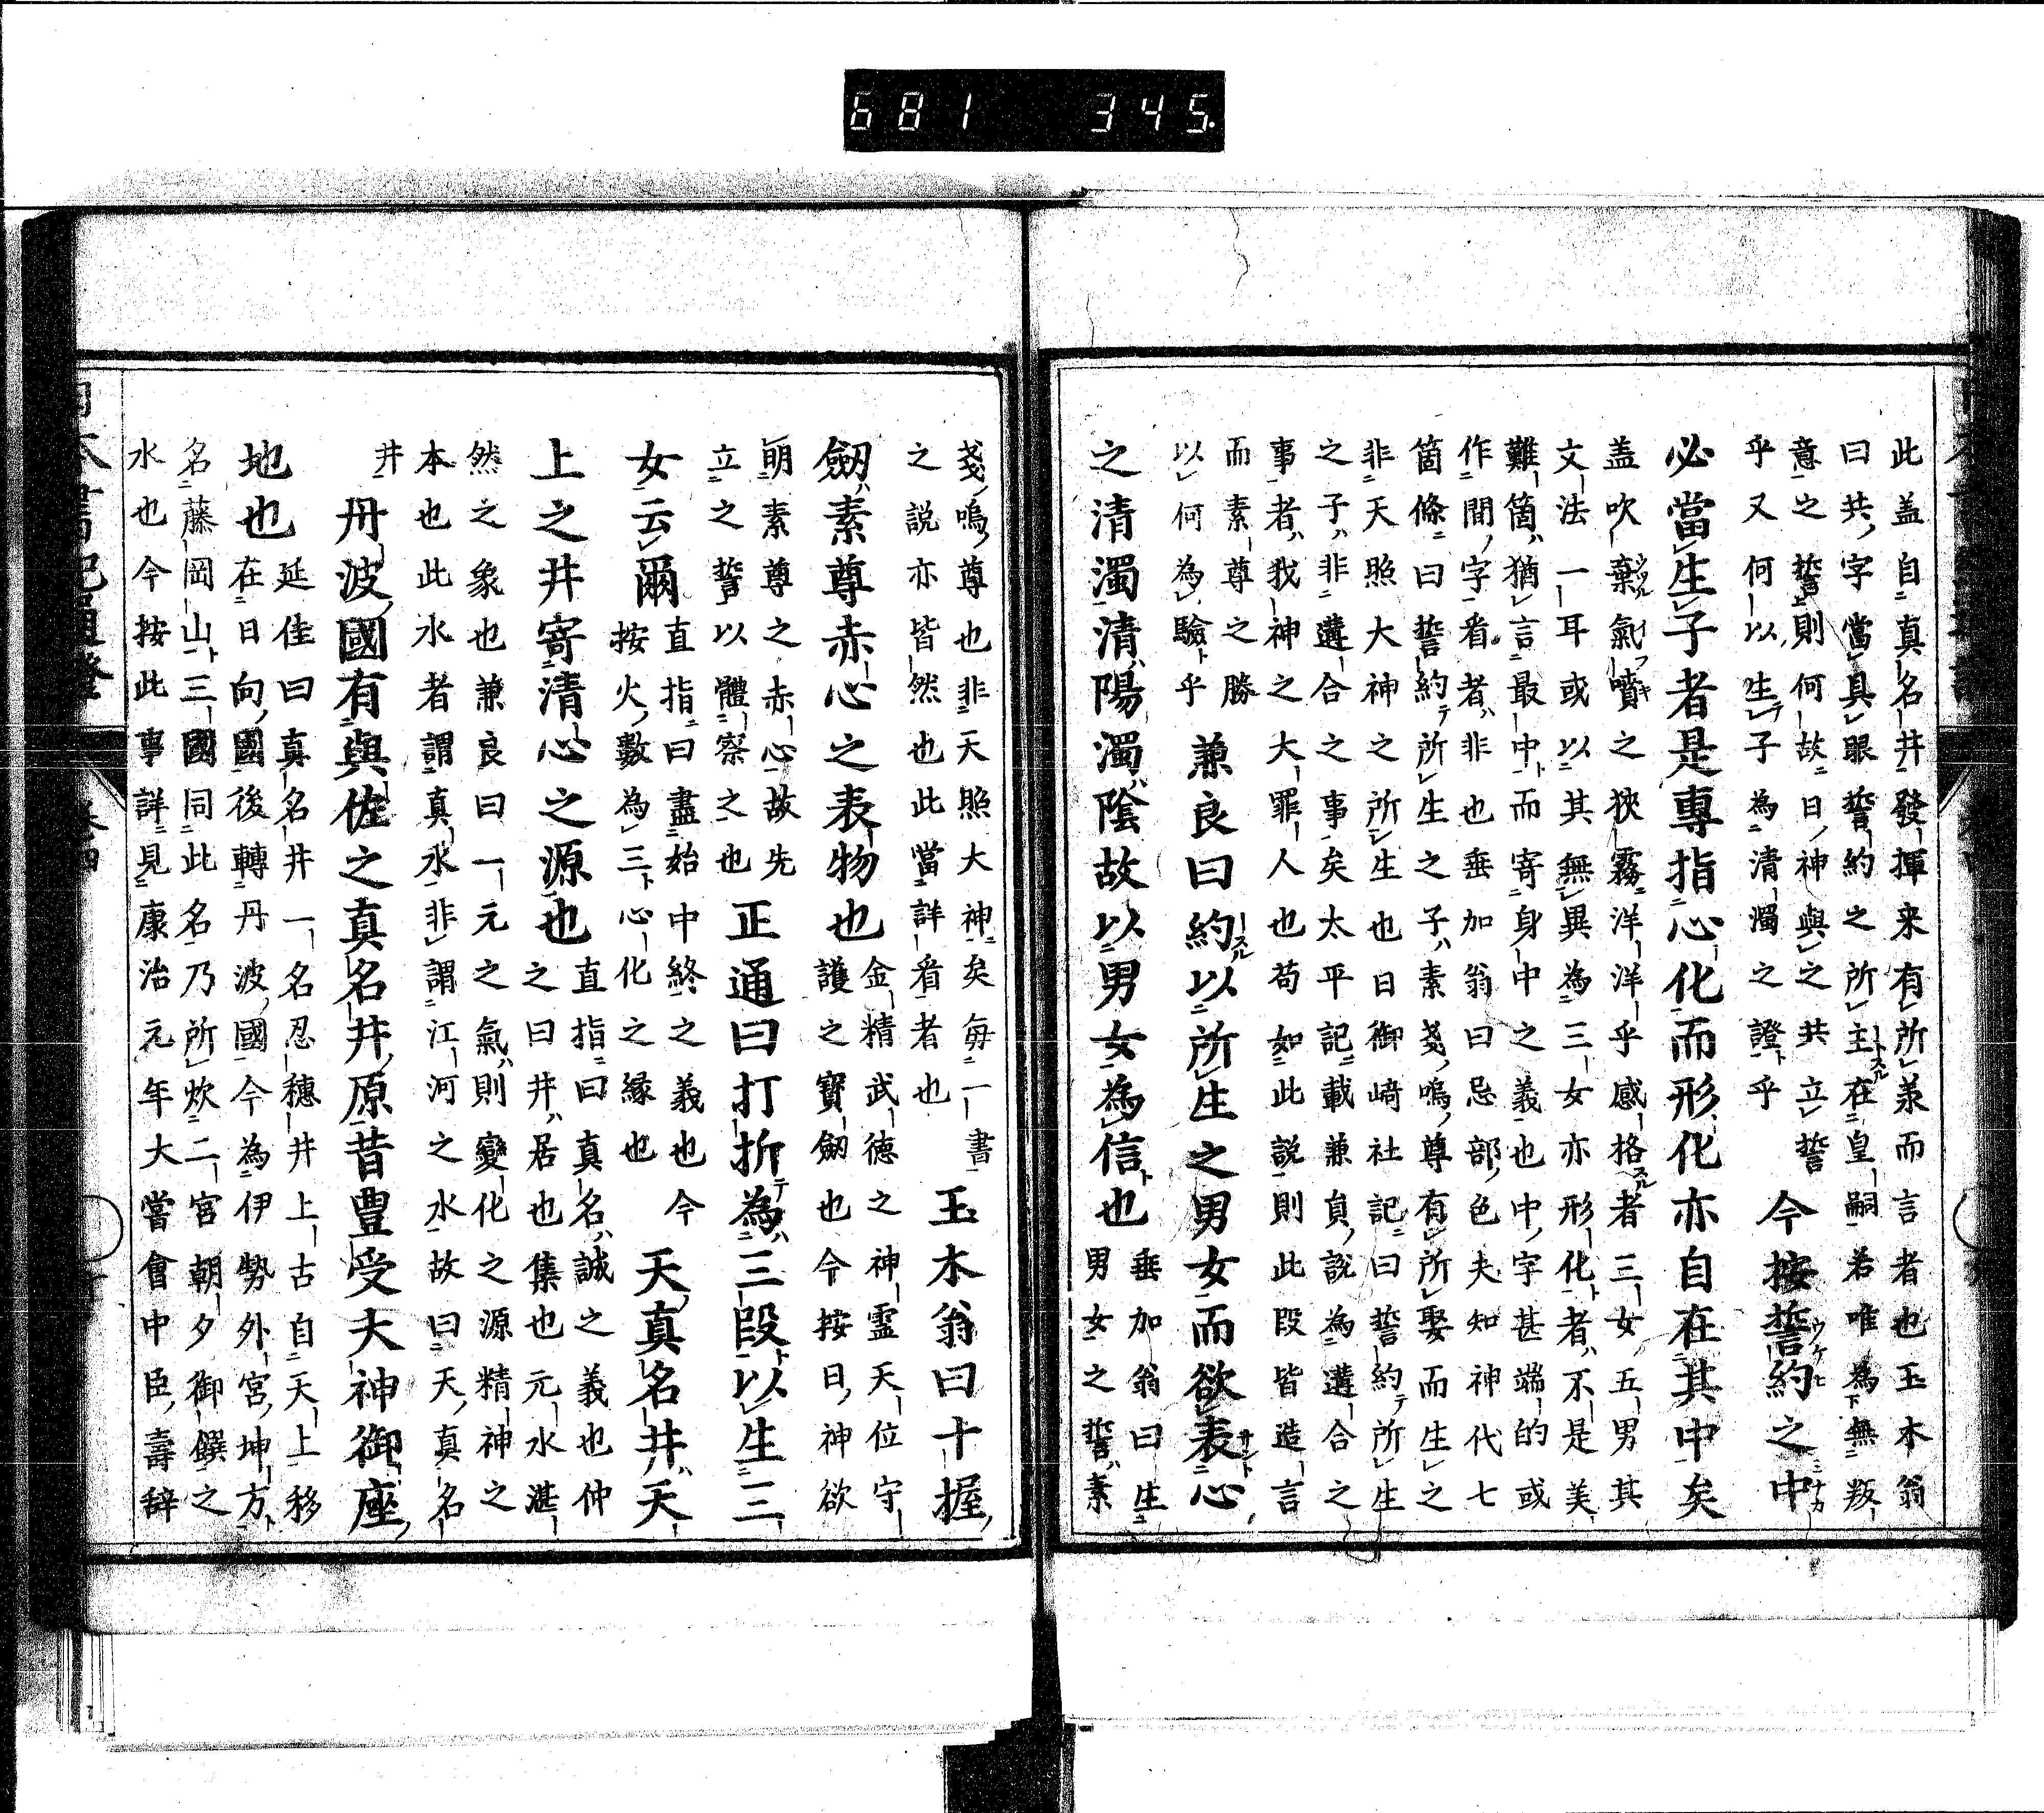 681 345.
此盖自真名井發揮来有所羕而言者也玉木翁
曰共字當具眼誓約之所主在皇嗣若唯為無叛
意之誓則何故日神與之共立誓
乎又何以生子為清濁之證乎
今按誓約之中
必當生子者是專指心化而形化亦自在其中矣
盖吹棄氣噴之狹霧洋洋乎感格者三女五男其
文法一耳或以其無異為三女亦形化者不是美
難箇猶言最中而寄身中之義也中字甚端的或
作間字看者非也垂加翁曰忌部色夫知神代七
箇條曰誓約所生之子素戔嗚尊有所娶而生之
非天照大神之所生也日御﨑社記曰誓約所生
之子非遘合之事矣太平記載兼員說為遘合之
事者我神之大罪人也苟如此說則此段皆造言
而素尊之勝
以何為驗乎
兼良曰約以所生之男女而欲表心
之清濁清陽濁陰故以男女為信也
垂加翁曰生
男女之誓素
戔嗚尊也非天照大神矣每一書
之說亦皆然也此當詳看者也
玉木翁曰十握
劔素尊赤心之表物也
金精武德之神霊天位守
護之寶劔也今按日神欲
明素尊之赤心故先
立之誓以體察之也
正通曰打折為三段以生三
女云爾
直指曰盡始中終之義也今
按火數為三心化之縁也
天真名井天
上之井寄清心之源也
直指曰真名誠之義也仲
之曰井居也集也元水湛
然之象也兼良曰一元之氣則變化之源精神之
本也此水者謂真水非謂江河之水故曰天真名
井
丹波國有與佐之真名井原昔豊受大神御座
地也
延佳曰真名井一名忍穗井上古自天上移
在日向國後轉丹波國今為伊勢外宮坤方
名藤岡山三國同此名乃所炊二宮朝夕御饌之
水也今按此事詳見康治元年大嘗會中臣壽辭